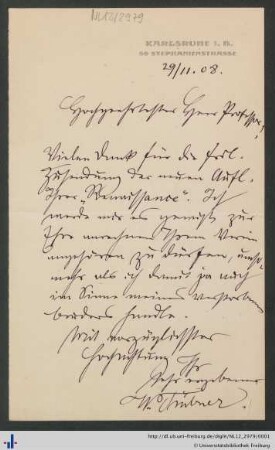 NL12/2979
KARLSRUHE I. B.
STEPHANIENSTRASSE
29/11.08.
Hochgeehrtester Herr Professor!
Vielen Dank für die frdl.
Zusendung der neuen Aufl.
Ihrer „Renaissance“. Ich
werde mir es gewiss zur
Ehre anrechnen Ihrem Verein
angehören zu dürfen, umso-
mehr als ich damit ja auch
im Sinne meines verstorbenen
bruders handle.
Mit vorzüglichster
Hochachtung Ihr
sehr ergebener
W. Trübner.
http://dl.ub.uni-freiburg.de/diglit/NL12_2979/0001
© Universitätsbibliothek Freiburg